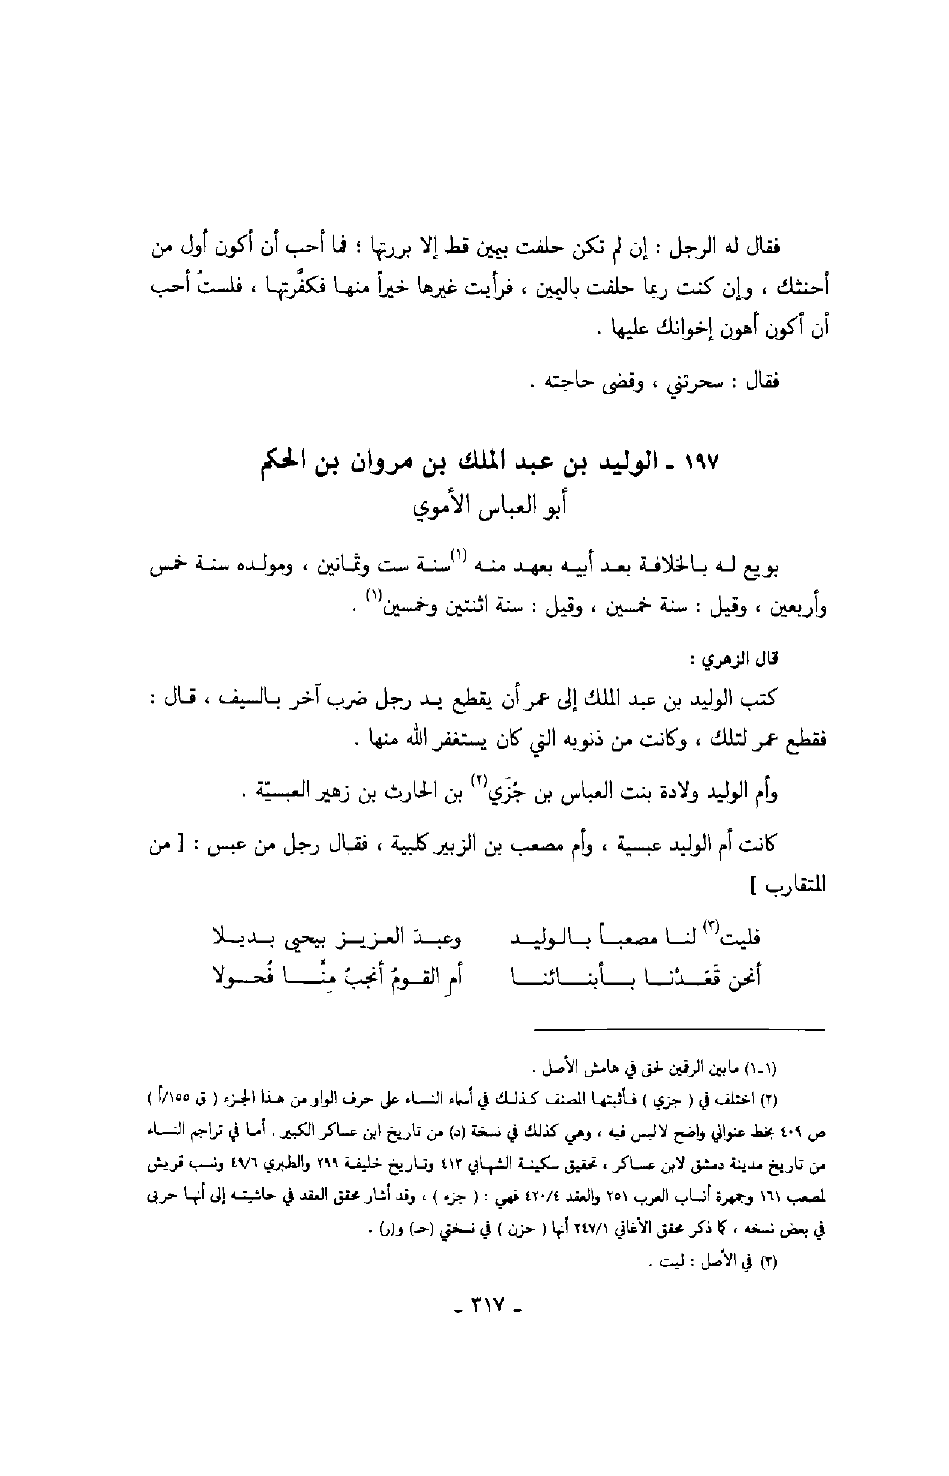 فقال له الرجل : إن لم تكن حلفت بيمين قط إلا بررتها ؛ فما أحب أن أكون أول من
أحنثك ، وإن كنت ربما حلفت باليمين ، فرأيت غيرها خيراً منها فكفَّرتها ، فلستُ أحب
أن أكون أهون إخوانك عليها .
فقال : سحرتني ، وقضى حاجته .
١٩٧ ـ الوليد بن عبد الملك بن مروان بن الحكم
أبو العباس الأموي
بويع له بالخلافة بعد أبيه بعهد منه (١)سنة ست وثمانين ، ومولده سنة خمس
وأربعين ، وقيل : سنة خمسين ، وقيل : سنة اثنتين وخمسين(١) .
قال الزهري :
كتب الوليد بن عبد الملك إلى عمر أن يقطع يد رجل ضرب آخر بالسيف ، قال :
فقطع عمر لتلك ، وكانت من ذنوبه التي كان يستغفر الله منها .
وأم الوليد ولادة بنت العباس بن جُزَي(٢) بن الحارث بن زهير العبسيّة .
كانت أم الوليد عبسية ، وأم مصعب بن الزبير كلبية ، فقال رجل من عبس : [ من
المتقارب ]
فليت(٣) لنا مصعباً بالوليد وعبدَ العزيز بيحيى بديلا
أنحن قَعَدْنا بأبنائنا أم القومُ أنجبُ منَّا فُحولا
(١ـ١) مابين الرقمين لحق في هامش الأصل .
(٢) اختلف في ( جزي ) فأثبتها المصنف كذلك في أسماء النساء على حرف الواو من هذا الجزء ( ق ١٥٥/أ )
ص ٤٠٩ بخط عنواني واضح لالبس فيه ، وهي كذلك في نسخة (د) من تاريخ ابن عساكر الكبير . أما في تراجم النساء
من تاريخ مدينة دمشق لابن عساكر ، تحقيق سكينة الشهابي ٤١٣ وتاريخ خليفة ٢٩٩ والطبري ٤٩/٦ ونسب قريش
لمصعب ١٦١ وجمهرة أنساب العرب ٢٥١ والعقد ٤٢٠/٤ فهي : ( جزء ) ، وقد أشار محقق العقد في حاشيته إلى أنها حربى
في بعض نسخه ، كما ذكر محقق الأغاني ٢٤٧/١ أنها ( حزن ) في نسختي (حـ) و(ر) .
(٣) في الأصل : ليت .
ـ ٣١٧ ـ